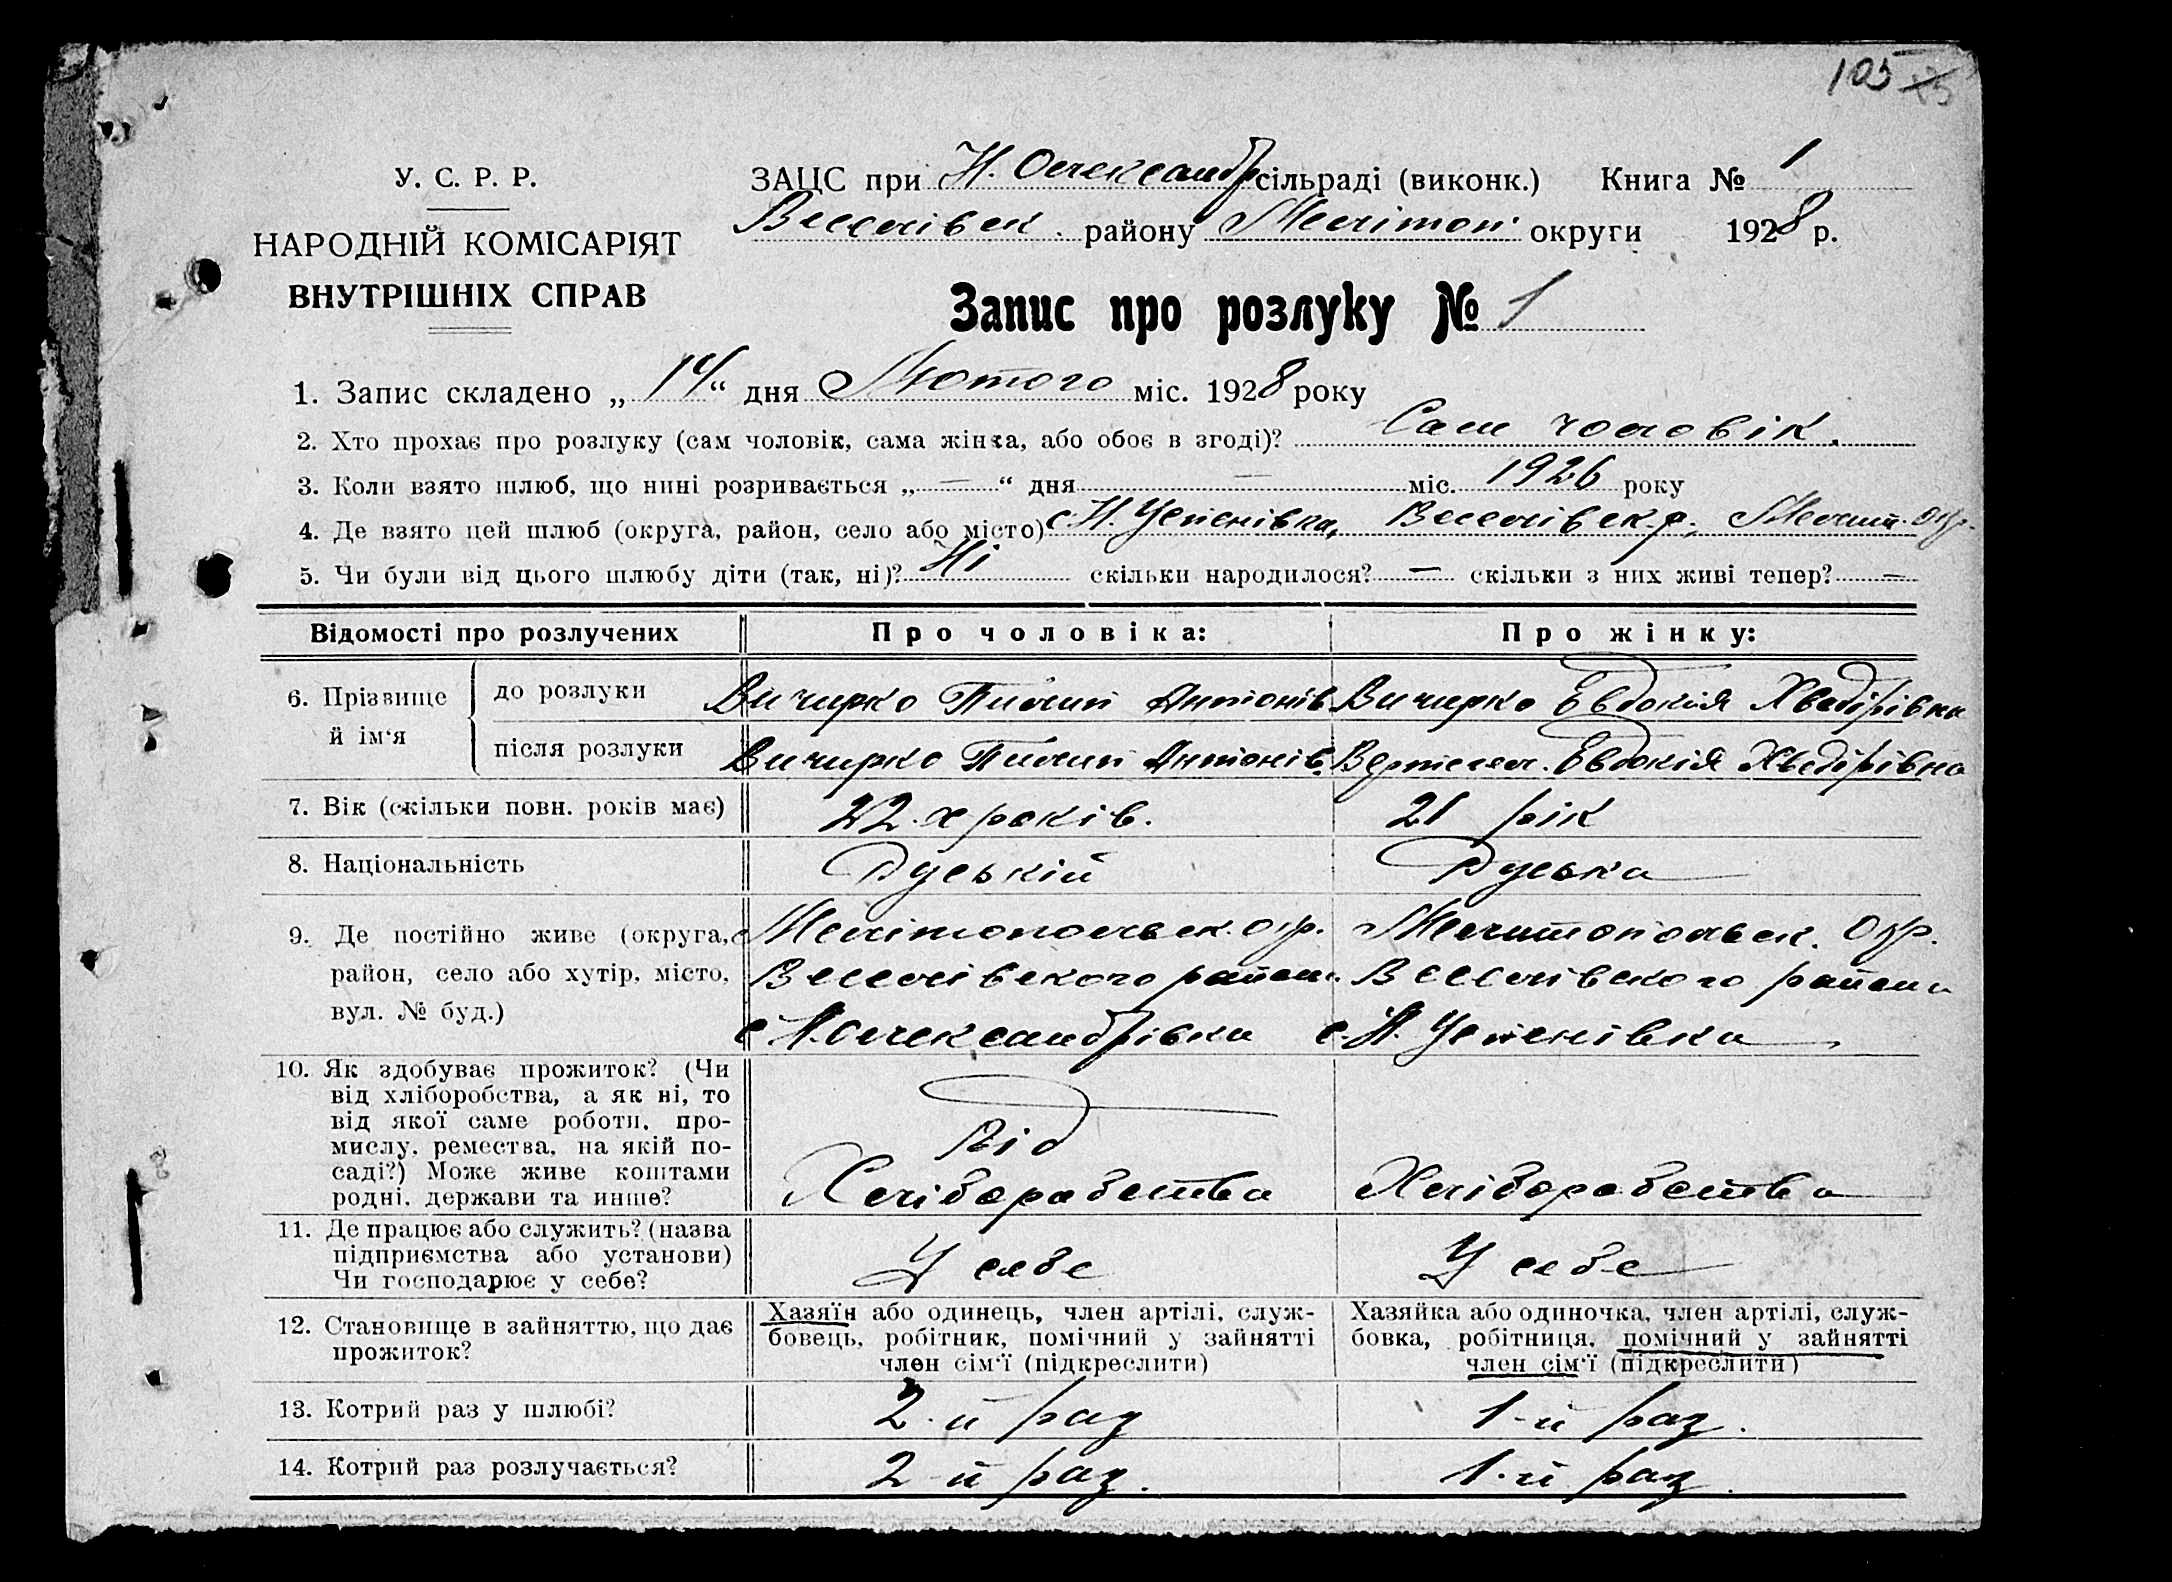 105
У. С. Р. Р.
НАРОДНІЙ КОМІСАРІЯТ
ВНУТРІШНІХ СПРАВ
ЗАЦС при Н. Олександр сільраді (виконк.) Книга № 1
Веселівск. району Мелітоп. округи 1928 р.
Запис про розлуку № 1
1. Запис складено „14“ дня Лютого міс. 1928 року
2. Хто прохає про розлуку (сам чоловік, сама жінка, або обоє в згоді)? Сам чоловік.
3. Коли взято шлюб, що нині розривається „—“ дня — міс. 1926 року
4. Де взято цей шлюб (округа, район, село або місто) с. Н. Успенівка, Веселівск. р., Мелит. окр.
5. Чи були від цього шлюбу діти (так, ні)? Ні скільки народилося? — скільки з них живі тепер? —
Відомості про розлучених Про чоловіка: Про жінку:
6. Прізвище й ім‘я
до розлуки Вичирко Пилип Антонів Вичирко Евдокія Хведірівна
після розлуки Вичирко Пилип Антонів. Евдокія Хведірівна
7. Вік (скільки повн. років має) 22-х років. 21 рік
8. Національність Руський Руська
9. Де постійно живе (округа, район, село або хутір, місто, вул. № буд.)
Мелітопольск. окр. Мелитопольск. Окр.
Веселівского района Веселівского района
с. Н. Олександрівка с. Н. Успенівка
10. Як здобуває прожиток? (Чи
від хліборобства, а як ні, то
від якої саме роботи, про-
мислу, ремества, на якій по-
саді?) Може живе коштами
родні, держави та инше?
Від
Хліборобства Хліборобства
11. Де працює або служить? (назва
підприємства або установи)
Чи господарює у себе?
У себе У себе
12. Становище в зайняттю, що дає
прожиток?
Хазяїн або одинець, член артілі, служ-
бовець, робітник, помічний у зайнятті
член сім‘ї (підкреслити)
Хазяйка або одиночка, член артілі, служ-
бовка, робітниця, помічний у зайнятті
член сім‘ї (підкреслити)
13. Котрий раз у шлюбі? 2-й раз 1-й раз.
14. Котрий раз розлучається? 2-й раз. 1-й раз.